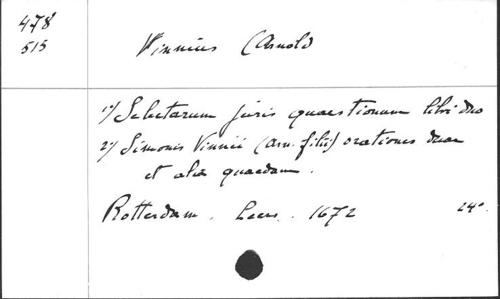 478
515
Vinnius (Arnold
1°/ Selectarum juris quaestionum libri duo
2°/ Simonis Vinnii (Arn. filii) orationes duae
et alia quaedam.
Rotterdam. Leers. 1672 24°